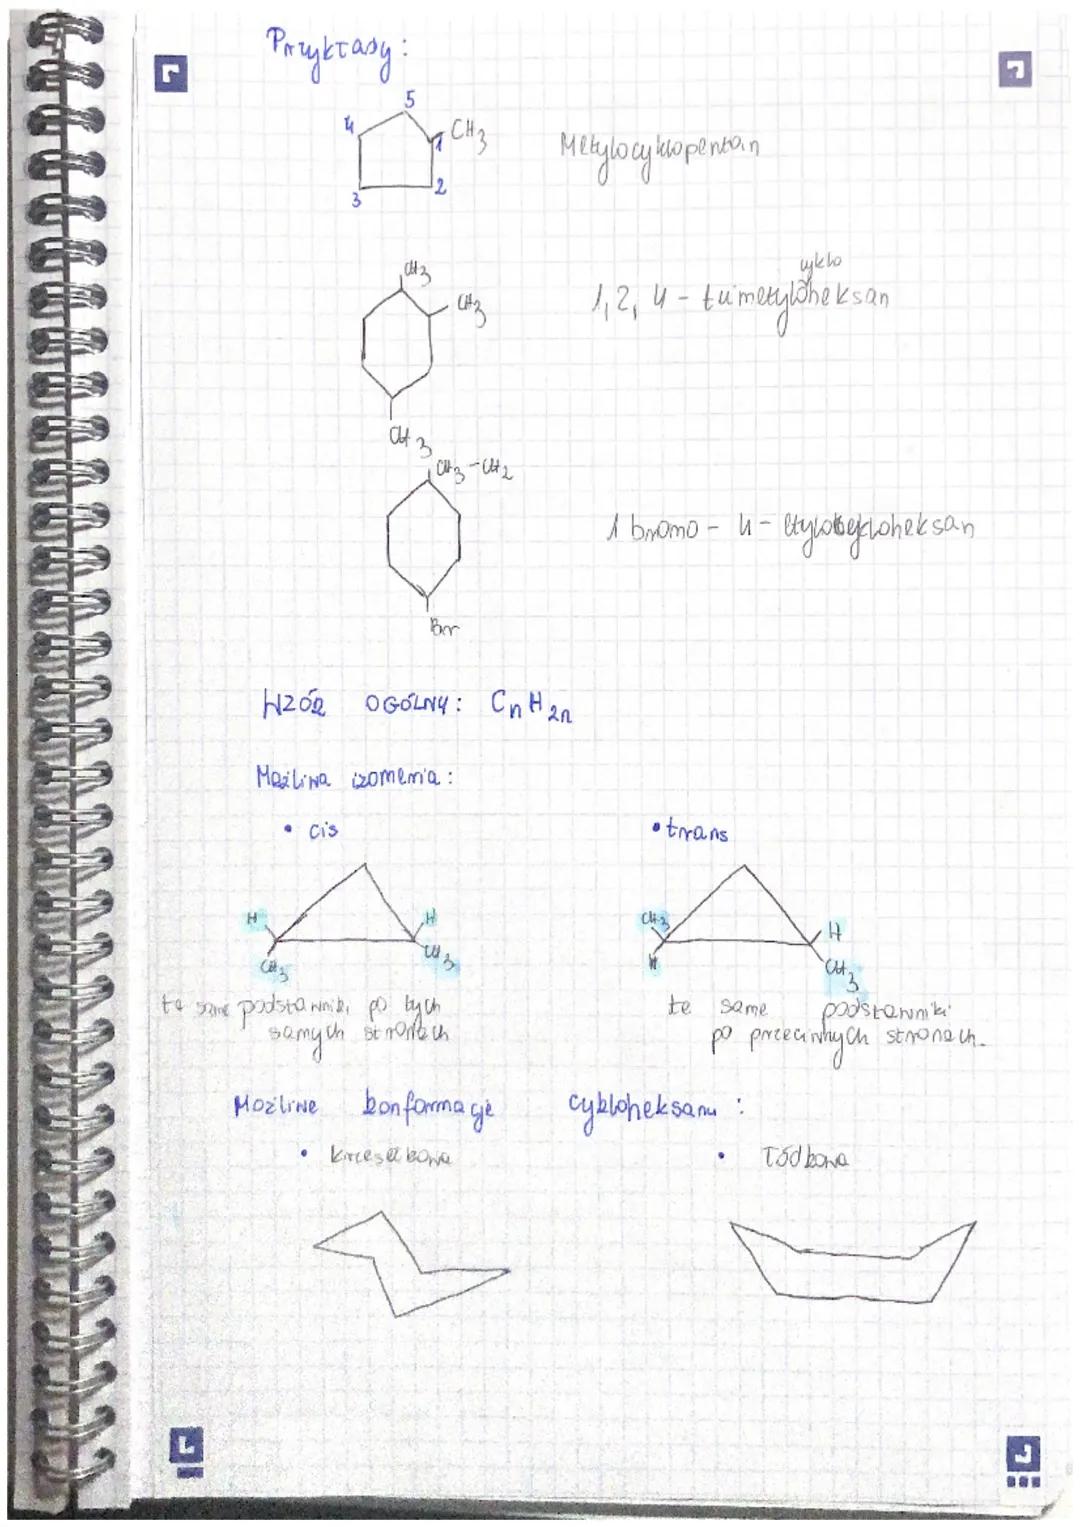 Przykłady:
5
4
1 CH3
3
2
Metylocyklopentan
CH3
CH3
CH3
cyklo
1,2,4 - trimetyloheksan
CH3-CH2
Br
1 bromo - 4 - etylocykloheksan
WZÓR OGÓLNY: CnH2n
Możliwa izomeria:
• cis
• trans
H
H
CH3
CH3
CH3
H
H
CH3
te same podstawniki po tych
samych stronach
te same podstawniki
po przeciwnych stronach.
Możliwe konformacje cykloheksanu:
• krzesełkowa
• łódkowa